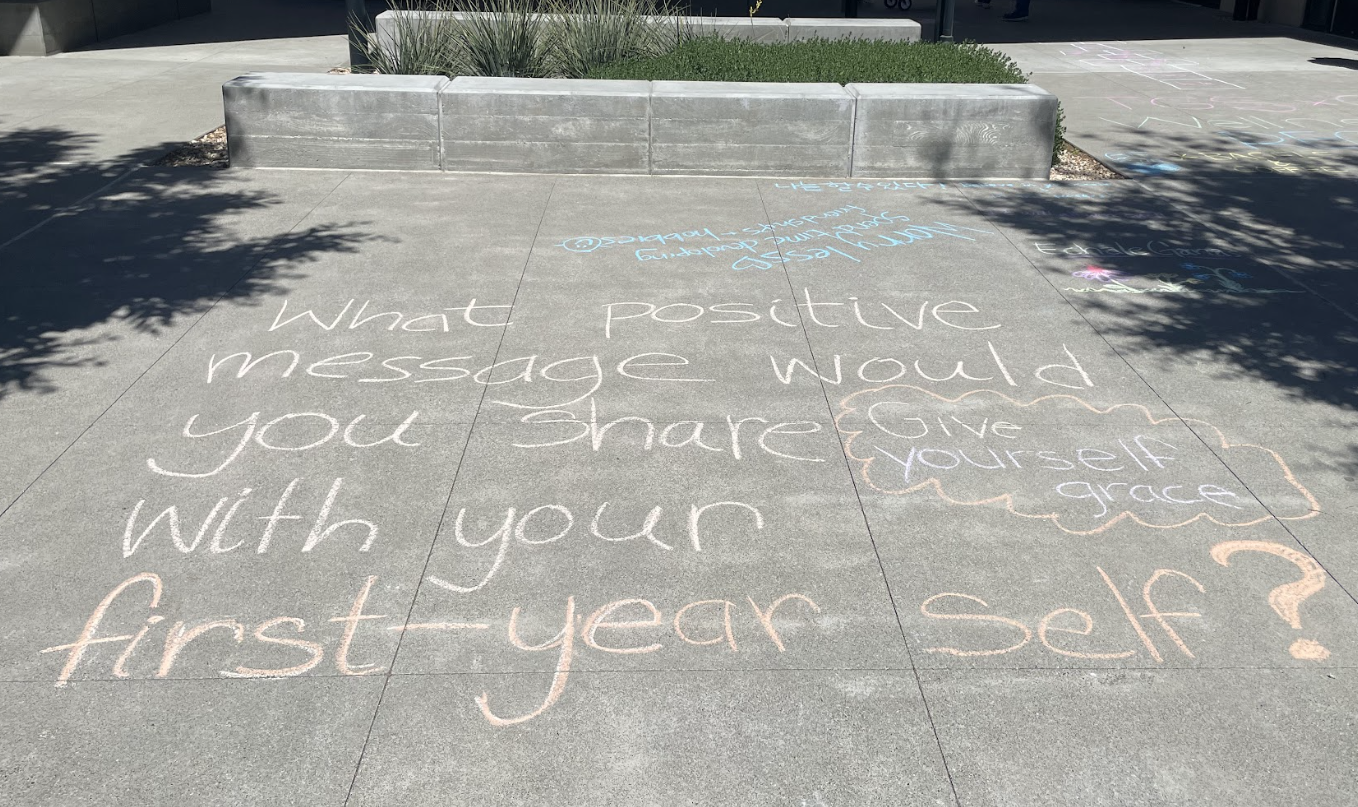 What positive
message would
you share
with your
first-year self?
Give
yourself
grace
Worry less
spend time developing
friendships + hobbies